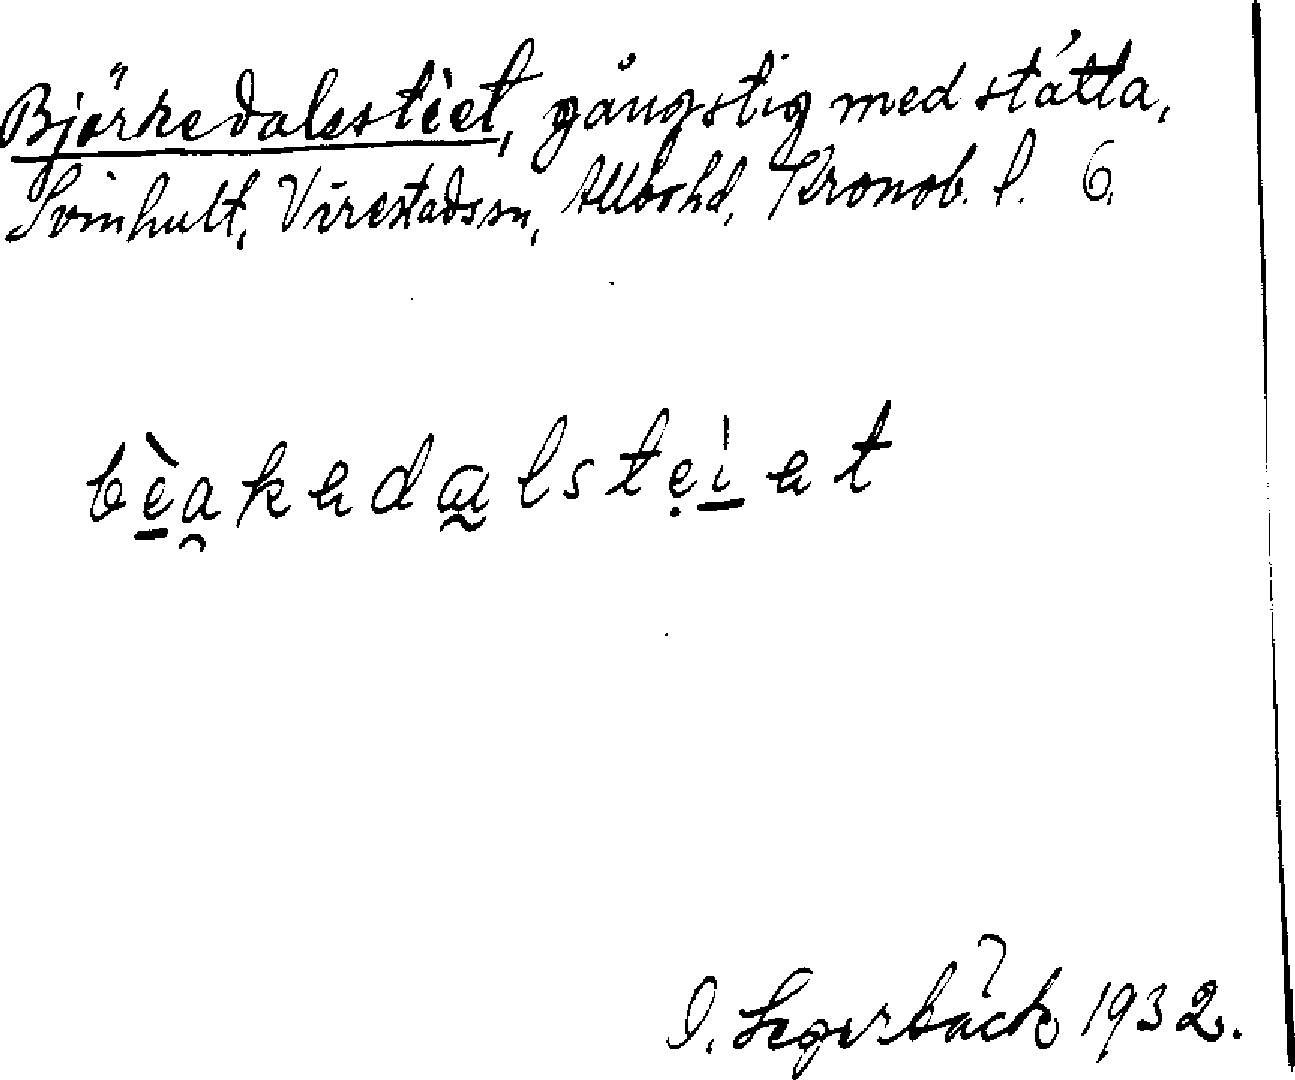 Björkedalsstiet, gångstig med stätta,
Svinhult, Virestads sn, Allbo hd, Kronob. l. 6.
bèa̯kedalsteiet
I. Segerbäck 1932.